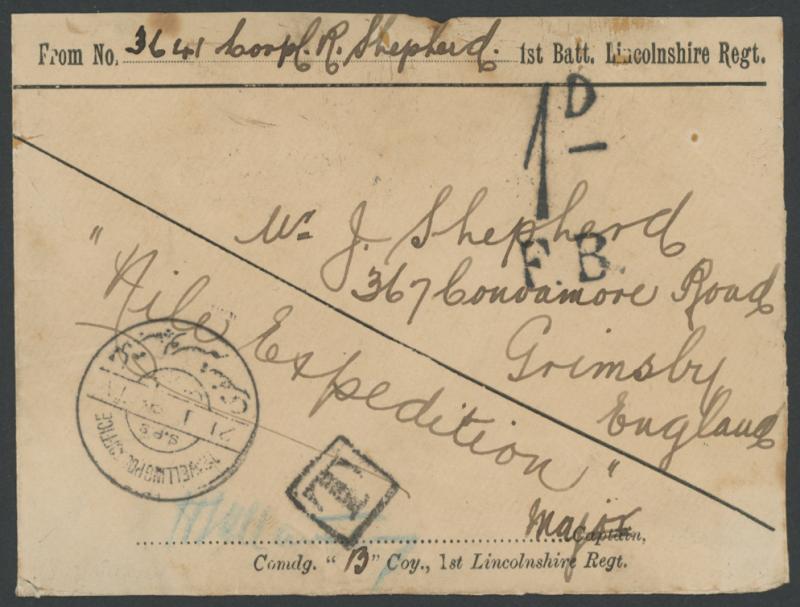 From No. 3641 Corpl. R. Shepherd. 1st Batt. Lincolnshire Regt.
1D
F.B.
Mr J. Shepherd
367 Convamore Road
Grimsby
England
"Nile Expedition"
TRAVELLING POST OFFICE
21 I
T
Major
Captain,
Comdg. "B" Coy., 1st Lincolnshire Regt.